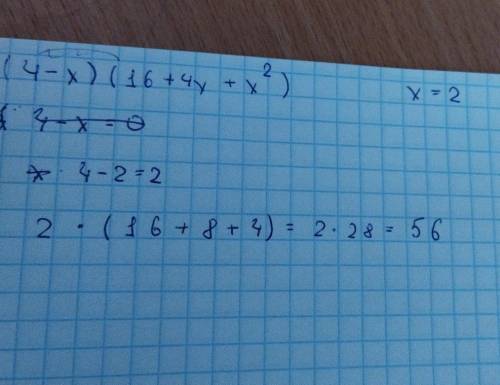 (4-x)(16+4x+x²) x=2
4-x=0
x. 4-2=2
2 · (16+8+4) = 2·28 = 56